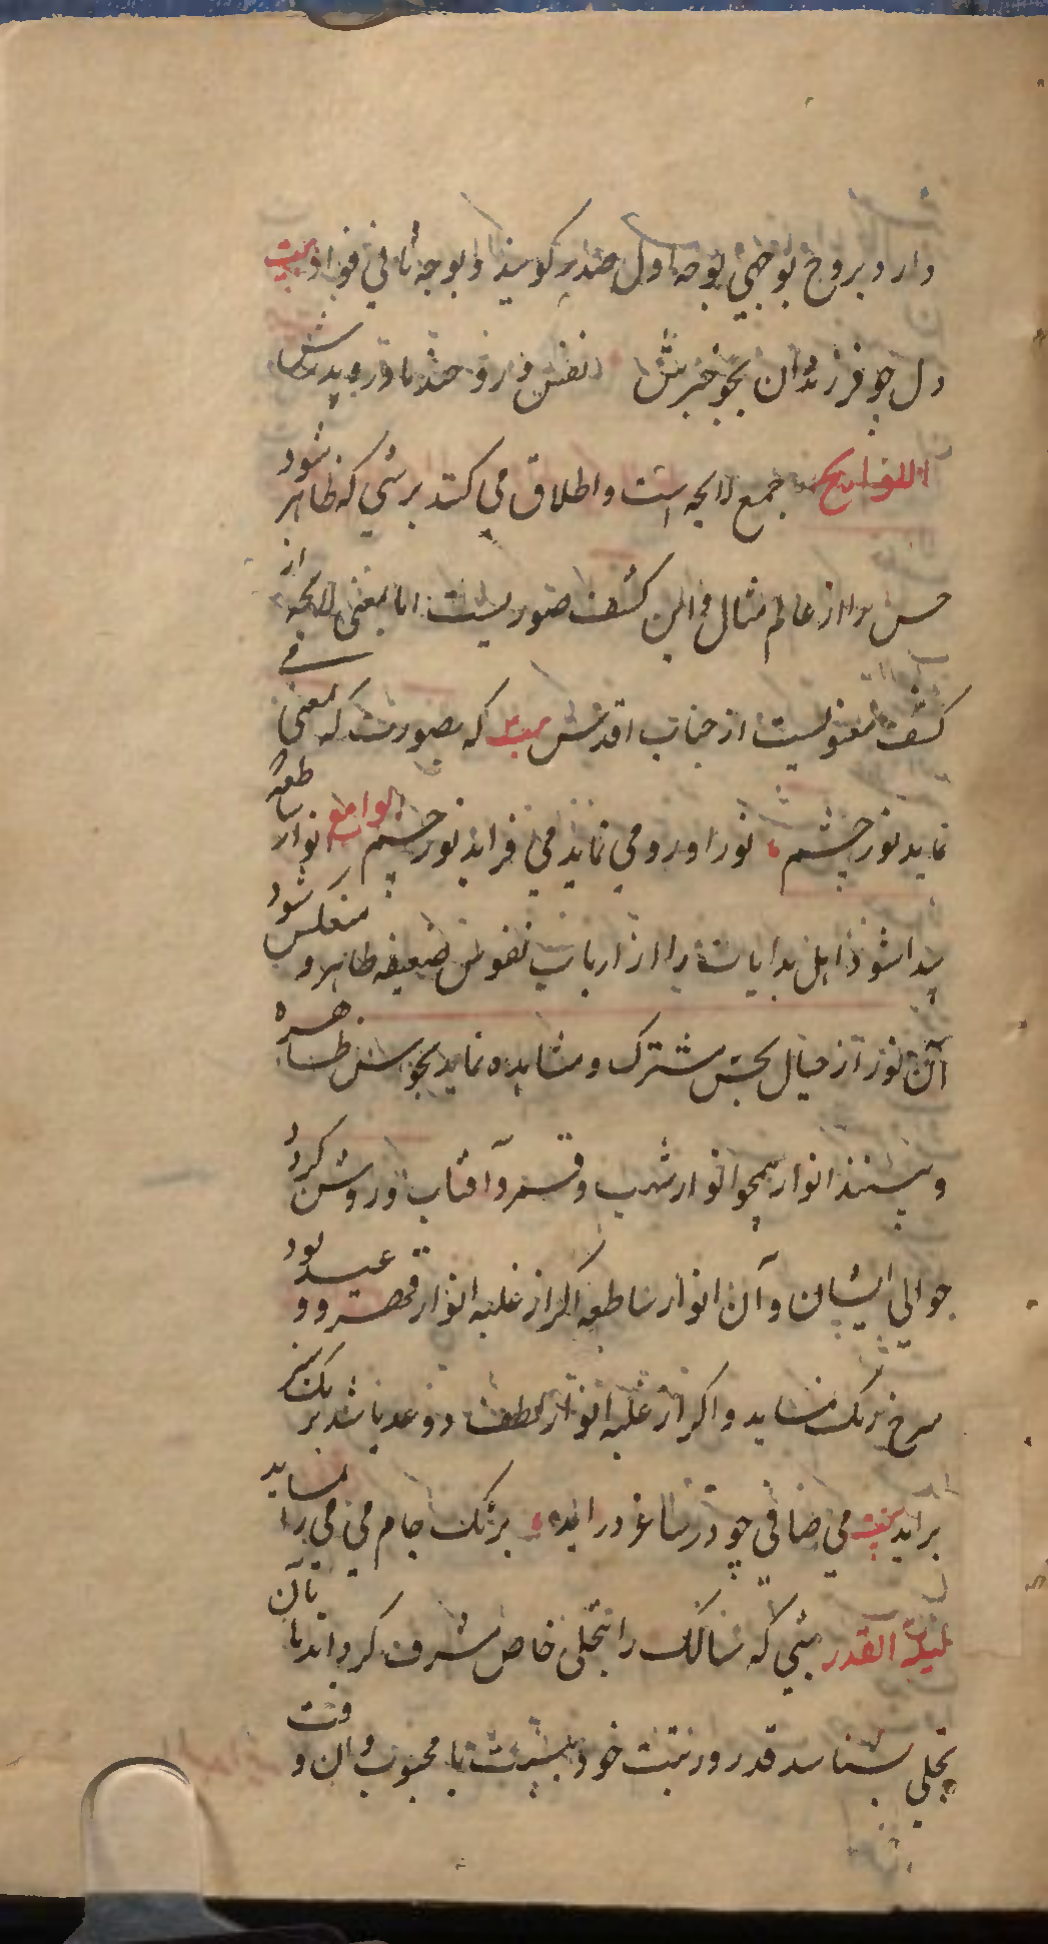 دارد بروح بوجهی بوجه اول صدر گویند و بوجه ثانی فواد بیت
دل چو فرزند دان بجو خبرش نفس
اللوایح جمع لایحه است و اطلاق می کنند بر شی که ظاهر شود
حس را از عالم مثال و این کشف صوریست اما بمعنی لایحه از
کشف معنویست از جناب اقدس بیت که بصورت که بمعنی
نماید نور چشم نور او رو می نماید می فزاید نور چشم لوامع انوار ساطعه
پیدا شود اهل بدایات را از ارباب نفوس ضعیفه ظاهره و منعکس شود
آن نور از خیال بحس مشترک و مشاهده نماید بحواس ظاهره
و بینند انوار همچو انوار شهب و قمر و آفتاب و روشن گردد
حوالی ایشان و آن انوار ساطعه اگر از غلبه انوار قهر و وعید بود
سرخ رنگ نماید و اگر از غلبه انوار لطف و وعد باشد برنگ سبز
براید بیت می صافی چو در ساغر دراید برنگ جام می می را نماید
لیلة القدر شبی که سالک را بتجلی خاص مشرف گردانند تا بآن
تجلی بشناسد قدر و رتبت خود بنسبت با محبوب و آن وقت